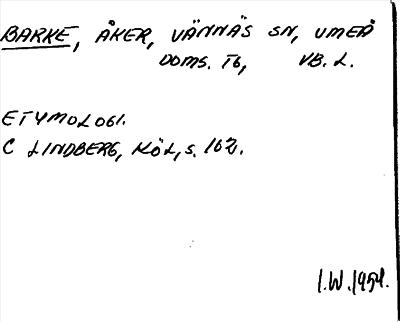 BARKE, ÅKER, VÄNNÄS SN, UMEÅ
DOMS. TG, VB. L.
ETYMOLOGI.
C LINDBERG, KÖL, S. 162.
I.W. 1954.